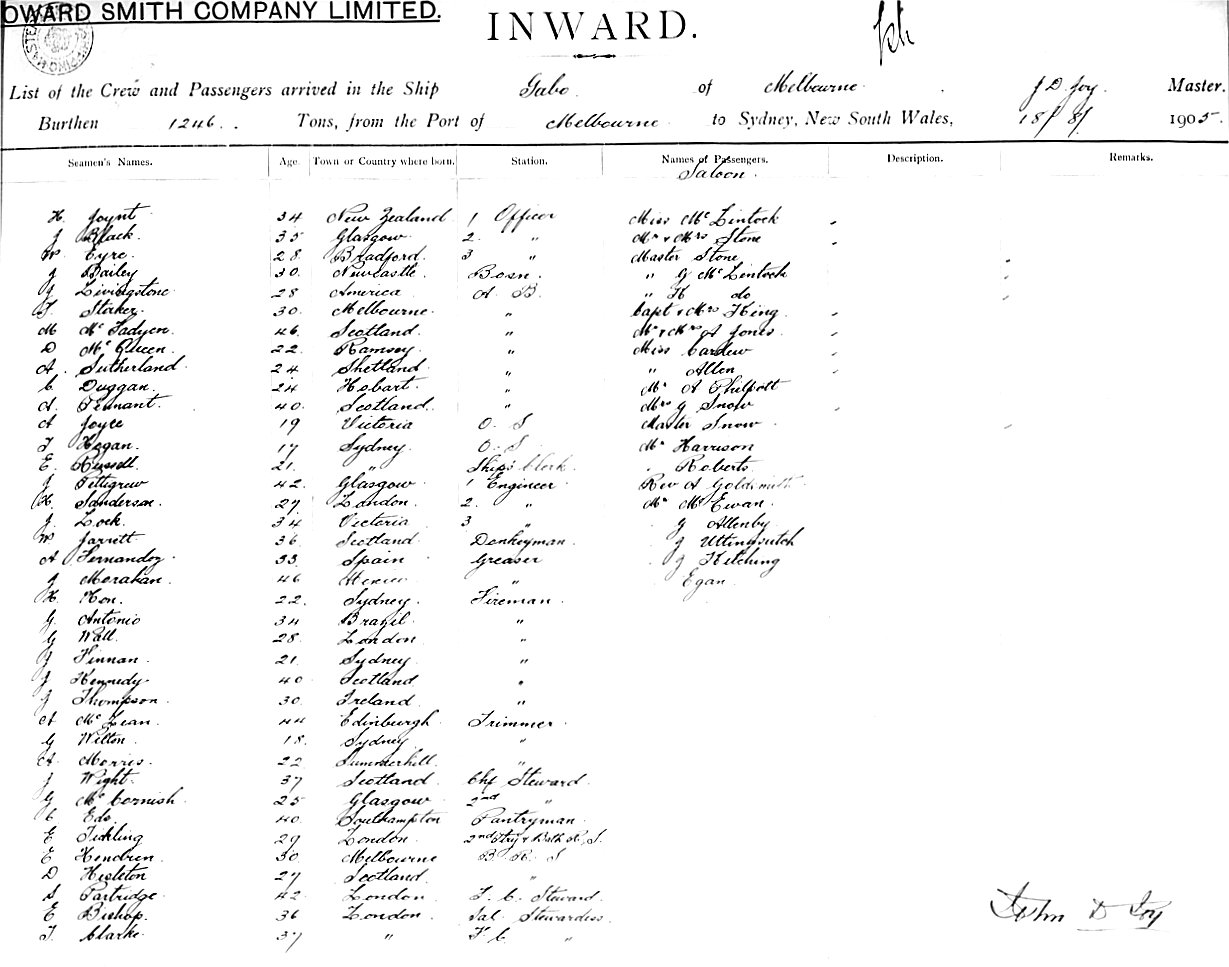 OWARD SMITH COMPANY LIMITED.
INWARD.
List of the Crew and Passengers arrived in the Ship Gabo of Melbourne J D Joy Master.
Burthen 1246 Tons, from the Port of Melbourne to Sydney, New South Wales, 18/8/ 1905.
Seamen's Names. Age. Town or Country where born. Station. Names of Passengers. Description. Remarks.
Saloon.
H. Joynt 34 New Zealand 1 Officer Miss McLintock
J Black. 35 Glasgow 2. " Mr & Mrs Stone
W Eyre. 28 Bradford. 3 " Master Stone
J Bailey 30 Newcastle Bosn. " G McLintock
J Livingstone 28 America A. B. " H do
T. Staker. 30 Melbourne " Capt & Mrs King
M McFadyen. 46 Scotland " Mr & Mrs A Jones
D McQueen. 22 Ramsey " Miss Cardew
A. Sutherland 24 Shetland " " Allen
C Duggan. 24 Hobart. " Mr A Philpott
A Tennant. 40. Scotland. " Mrs G Snow
A Joyce 19 Victoria O. S Master Snow
T Hogan. 17 Sydney. O. S Mr Harrison
E. Russell. 21. " Ship's Clerk Roberts
J Pettigrew 42. Glasgow 1 Engineer Rev A Goldsmith
H. Sanderson. 27 London 2. " Mr McEwan.
J. Lock. 34 Victoria 3 " J Allenby
W Jarrett 36 Scotland Donkeyman.
A Fernandez 33. Spain Greaser J Kitching
J Morahan. 46 " Egan
H. Hon. 22. Sydney. Fireman.
G. Antonio 34 Brazil "
G Wall. 28. London "
J Finnan. 21. Sydney "
J Kennedy. 40. Scotland "
J Thompson. 30. Ireland "
A McLean. 44 Edinburgh Trimmer.
G Wilton. 18. Sydney "
A. Morris. 22 Summerhill. "
J Wight. 37 Scotland Chf Steward
G McCornish. 25 Glasgow 2nd "
C Ede. 40. Southampton Pantryman.
E Tickling 29 London. 2nd Stry & Bath R. S.
E Hendren. 30. Melbourne B. R. S
D Hisleton 27 Scotland. "
S Partridge. 42 London F. C. Steward.
E Bishop. 36 London Sal. Stewardess
T. Clarke. 37 " F C "
John D Joy